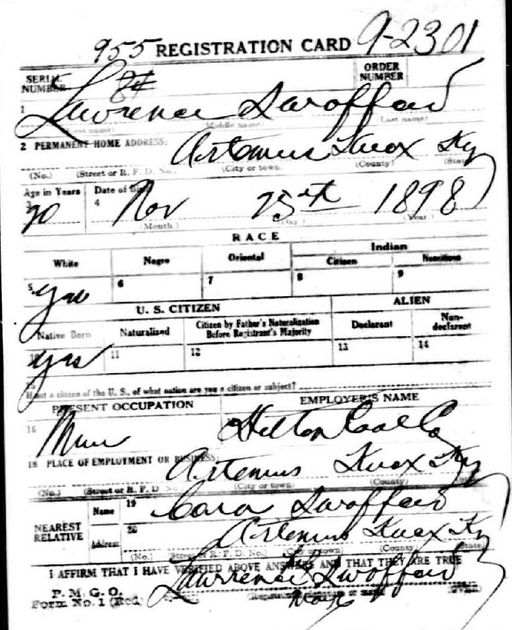 955 REGISTRATION CARD 9-2301
SERIAL NUMBER ORDER NUMBER
1 Lawrence Swofford
(First name) (Middle name) (Last name)
2 PERMANENT HOME ADDRESS: Artemus Knox Ky
(No.) (Street or R. F. D. No.) (City or town) (County) (State)
Age in Years Date of Birth
20 4 Nov 25th 1898
(Month.) (Day.) (Year.)
RACE
White Negro Oriental Indian
Citizen Noncitizen
5 yes 6 7 8 9
U. S. CITIZEN ALIEN
Native Born Naturalized Citizen by Father's Naturalization Before Registrant's Majority Declarant Non-declarant
10 yes 11 12 13 14
If not a citizen of the U. S., of what nation are you a citizen or subject?
PRESENT OCCUPATION EMPLOYER'S NAME
16 Coal Co
18 PLACE OF EMPLOYMENT OR BUSINESS: Artemus Knox Ky
(No.) (Street or R. F. D. No.) (City or town) (County)
NEAREST RELATIVE Name 19 Cora Swofford
Address 20 Artemus Knox Ky
(No.) (Street or R. F. D. No.) (City or town) (County)
I AFFIRM THAT I HAVE VERIFIED ABOVE ANSWERS AND THAT THEY ARE TRUE
P. M. G. O.
Form No. 1 (Red) Lawrence Swofford